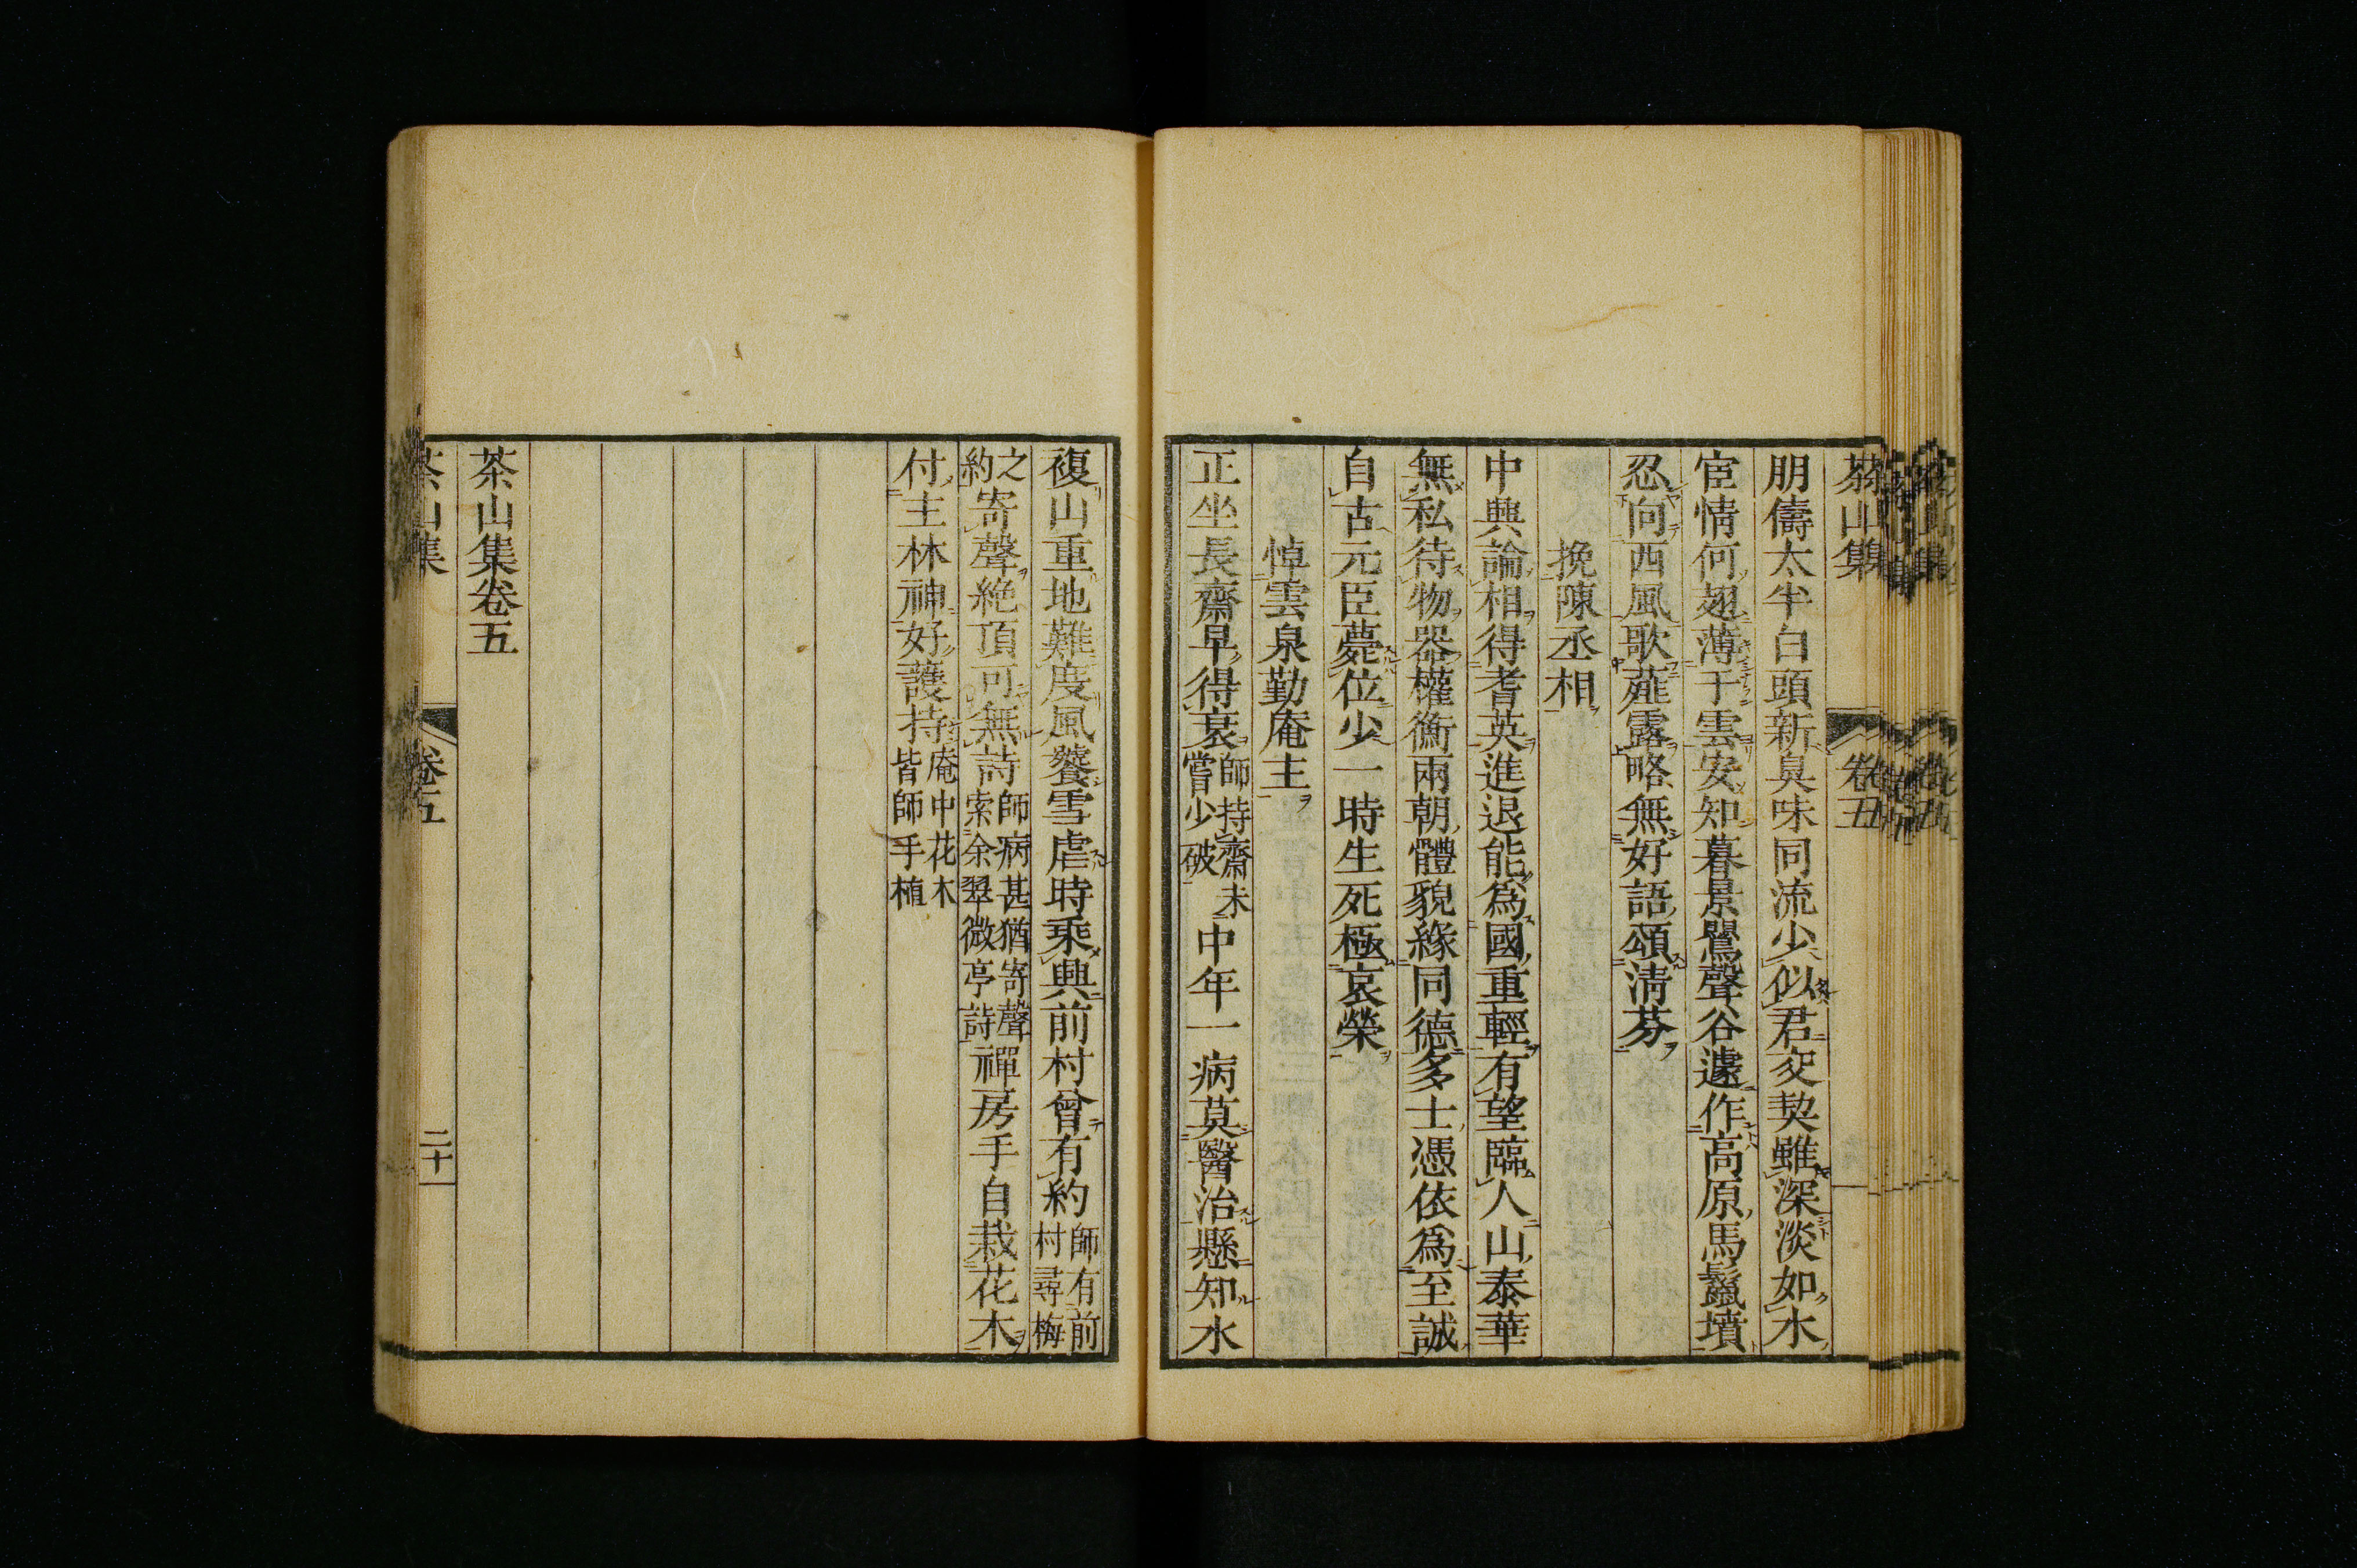 朋儔太半白頭新臭味同流少似君交契雖深淡如水
宦情何翅薄于雲安知暮景鸎聲谷遽作高原馬鬛墳
忍向西風歌薤露略無好語頌清芬
挽陳丞相
中興論相得耆英進退能爲國重輕有望臨人山泰華
無私待物器權衡兩朝體貌緣同德多士憑依爲至誠
自古元臣薨位少一時生死極哀榮
悼雲泉勤庵主
正坐長齋早得衰師持齋未嘗少破中年一病莫醫治懸知水
複山重地難度風饕雪虐時乘興前村曾有約師有前村尋梅
之約寄聲絶頂可無詩師病甚猶寄聲索余翠微亭詩禪房手自栽花木
付主林神好護持庵中花木皆師手植
茶山集卷五
茶山集 卷五 二十一